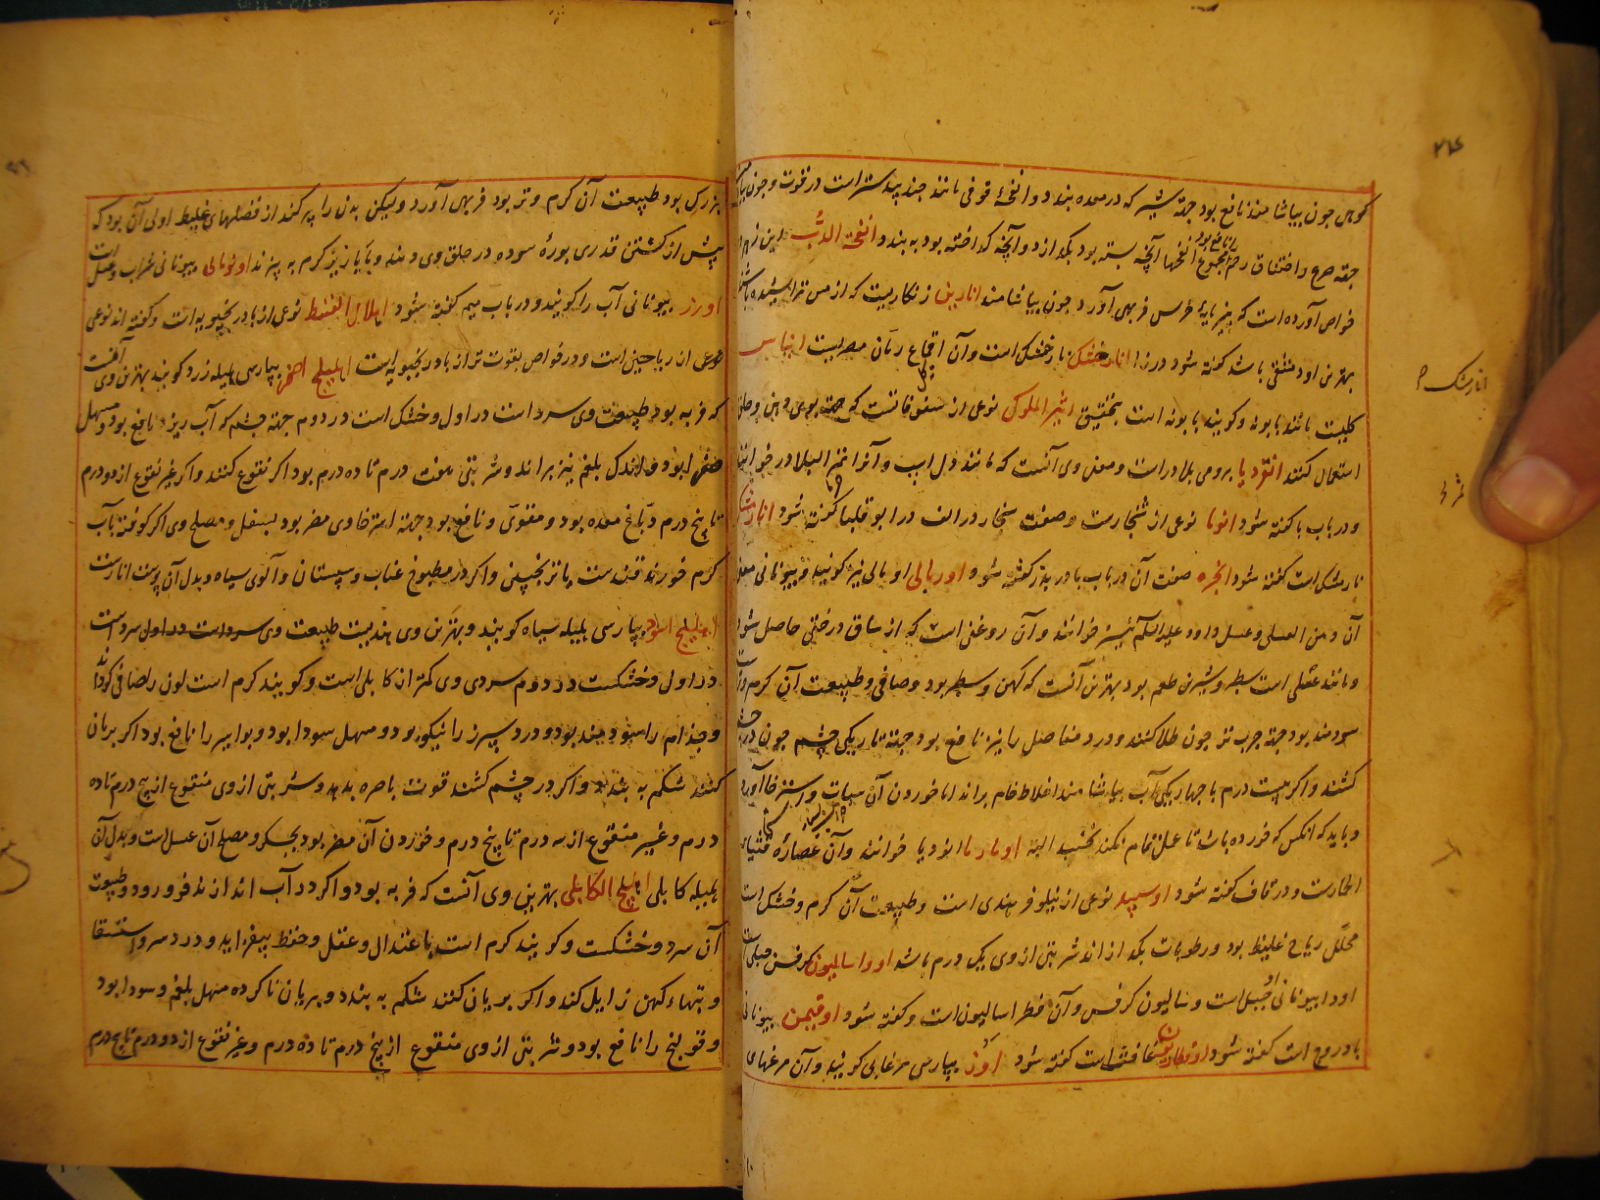 کوهی چون بیاشامند نافع بود جهة شیر که در معده بندد و انفحهٔ قوفی مانند جندبیدستر است در قوت و چون بیا
جهة صرع و اختناق رحم نافع بود و مجموع انفحها آنچه بسته بود بگدازد و آنچه گداخته بود به بندد انفحة الدب ابن زهر
خواص آورده است که پنیر مایهٔ خرس فربهی آورد چون بیاشامند انارین زنگاریست که از مس تراشیده باشند
بهترین او دمشقی باشد گفته شود در زا انارخشک نارخشک است و آن اقماع رمان مصریست انباس
کلیت مانند بابونه و گویند بابونه است بتحقیق اثیر الملوک نوعی از سفوفاتست که جهة بوی دهن و حلق
استعمال کنند انقردیا برومی بلادر است و معنی وی آنست که مانند دل است و آنرا ثمر البلادر خوانند
و در باب با گفته شود انوما نوعی از شنجارست وصفت شنجار در الف در ابوقلسا گفته شود انارمشک
نارمشک است گفته شود انجره صفت آن در باب با در بزر گفته شود اورمالی اومالی نیز گویند و بیونانی معنی
آن دهن العسل و عسل داود علیه السلم نیز خوانند و آن روغنی است که از ساق درختی حاصل شود
و مانند عسلی است سطبر و شیرین طعم بود بهترین آنست که کهن و سطبر بود و صافی و طبیعت آن گرم و تر است
سودمند بود جهة جرب تر چون طلا کنند و درد مفاصل را نیز نافع بود جهة تاریکی چشم چون در چشم
کشند و اگر بیست درم با چهاریک آب بیاشامند اخلاط خام براند اما خوردن آن سبات و استرخا آورد
و باید که آنکس که خورده باشد تا عمل تمام نکند نخسبد البته اومارما انودیا خوانند و آن عصارهٔ قثاء
الحمارست و در قاف گفته شود اوسپید نوعی از نیلوفر هندی است و طبیعت آن گرم و خشک است
محلل ریاح غلیظ بود و رطوبات بگدازاند شربتی از وی یک درم باشد اوداسالیون کرفس جبلی است
اودا بیونانی جبل است و سالیون کرفس و آن فطراسالیون است و گفته شود اوقیمن بیونانی
بادروج است گفته شود اوفاطاریون غافث است گفته شود اوز بپارسی مرغابی گویند و آن مرغهای
بزرک بود طبیعت آن گرم و تر بود فربهی آورد و لیکن بدن را پر کند از فضلهای غلیظ اولی آن بود که
پیش از کشتن قدری بورهٔ سوده در حلق وی دمند و با زیت گرم به پزند اونومالی بیونانی شراب و عسل است
اورز بیونانی آب را گویند و در باب میم گفته شود اهلال القسط نوعی از بادرنجبویه است و گفته اند نوعی
نوعی از ریاحین است و در خواص بقوت تر از بادرنجبویه است اهلیلج اصفر بپارسی هلیله زرد گویند بهترین وی آنست
که فربه بود طبیعت وی سرد است در اول و خشک است در دوم جهة چشم که آب ریزد نافع بود و مسهل
صفرا بود و اندک بلغم نیز براند و شربتی هفت درم تا ده درم بود اگر نقوع کنند و اگر غیر نقوع از دو درم
تا پنج درم دباغ معده بود و مقوی و نافع بود جهة استرخا وی مضر بود بسفل و مصلح وی اگر کوفته بآب
گرم خورند قندست یا ترنجبین و اگر در مطبوخ عناب و سپستان و آلوی سیاه و بدل آن پوست انارست
اهلیلج اسود بپارسی هلیله سیاه گویند و بهترین وی هندیست طبیعت وی سرد است در اول سرد است
در اول و خشکست در دوم سردی وی کمتر از کابلی است و گویند گرم است لون را صافی گرداند
و جذام را سودمند بود و درد سپرز را نیکو بود و مسهل سودا بود و بواسیر را نافع بود اگر بریان
کنند شکم به بندد و اگر در چشم کشند قوت باصره بدهد و شربتی از وی منقوع از پنج درم تا ده
درم و غیر منقوع از سه درم تا پنج درم و خوردن آن مضر بود بجگر و مصلح آن عسل است و بدل آن
هلیله کابلی اهلیلج الکابلی بهترین وی آنست که فربه بود و اگر در آب اندازند فرو رود و طبیعت
آن سرد و خشکست و گویند گرم است باعتدال و عقل و حفظ بیفزاید و درد سر و استسقا
و تبهاء کهن زایل کند و اگر بریان کنند شکم به بندد و بریان ناکرده مسهل بلغم و سودا بود
و قولنج را نافع بود و شربتی از وی منقوع از پنج درم تا ده درم و غیر نقوع از دو درم تا پنج درم